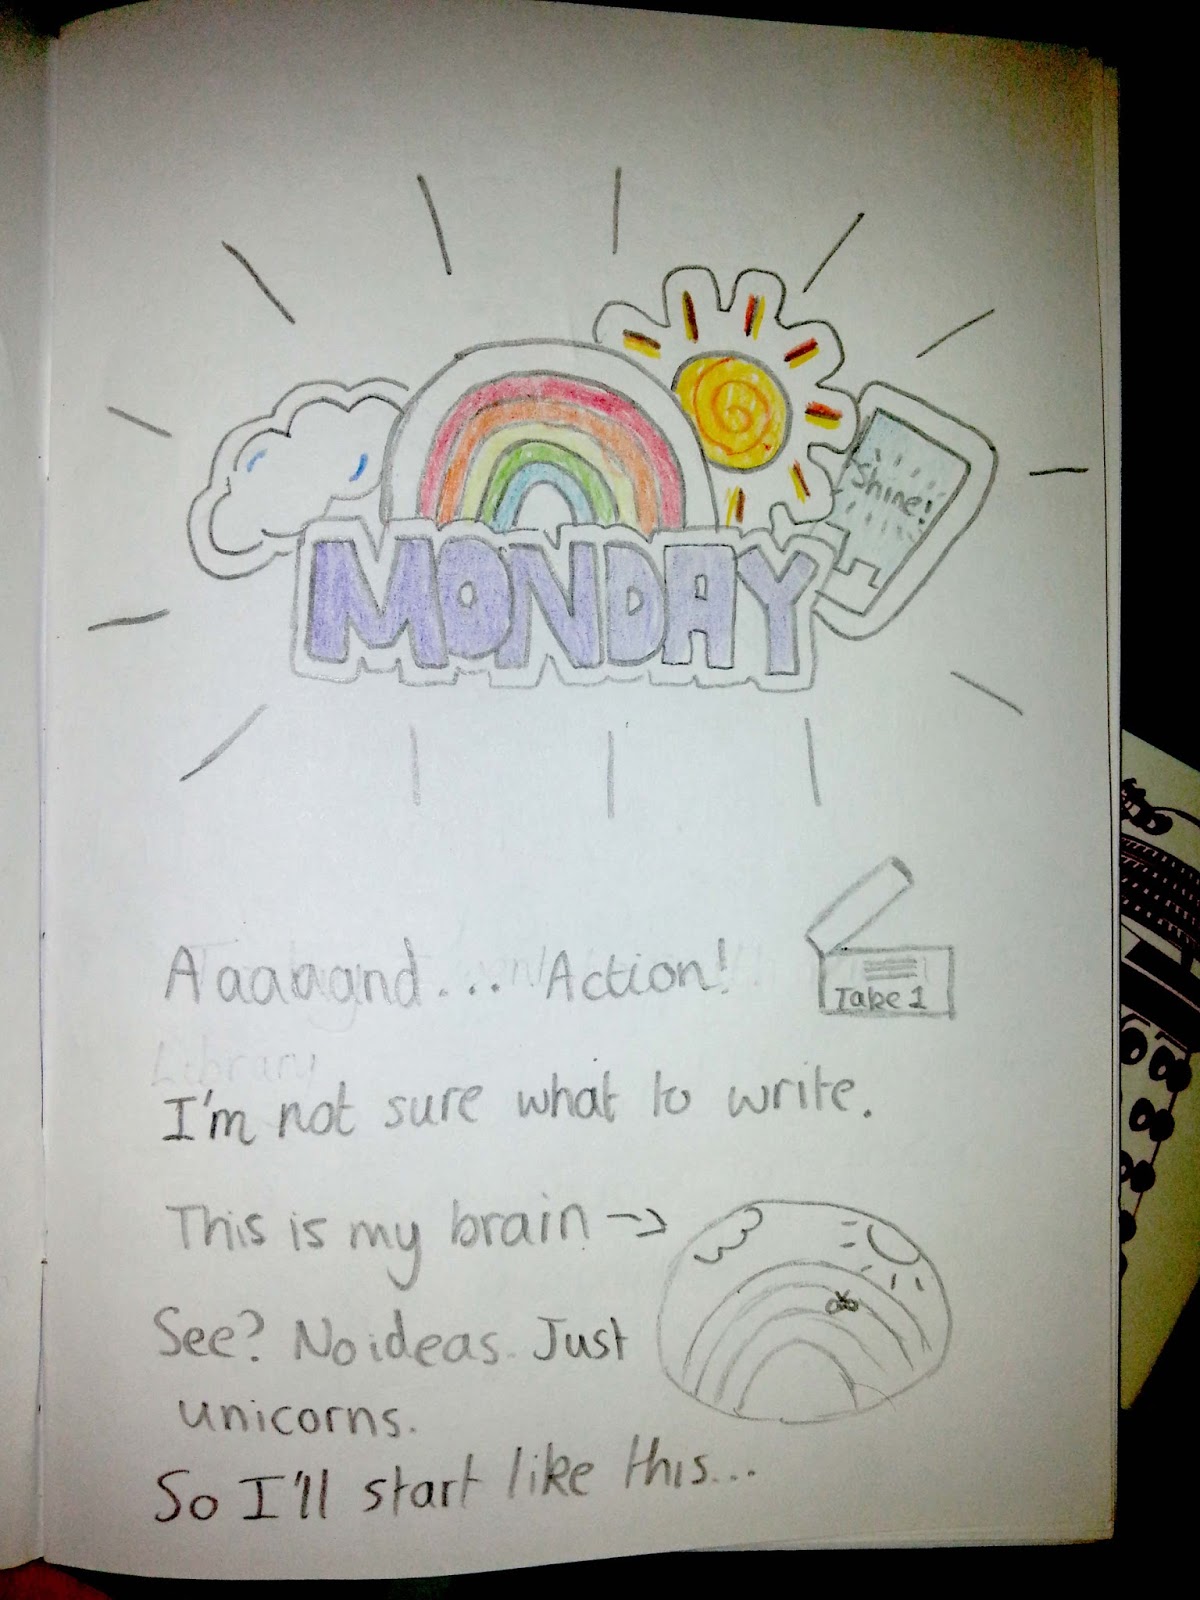 Shine!
MONDAY
Aaaaand... Action!
Take 1
Library
I'm not sure what to write.
This is my brain ->
See? No ideas. Just
unicorns.
So I'll start like this...